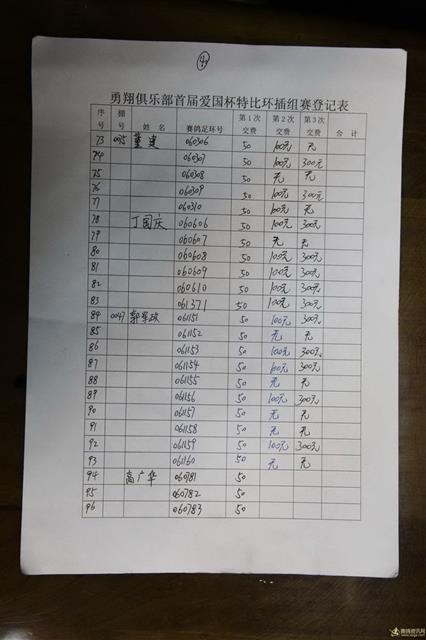 勇翔俱乐部首届爱国杯特比环插组赛登记表
序号 棚号 姓名 赛鸽足环号 第1次交费 第2次交费 第3次交费 合计
73 董建 060306 50 100元 无
74 060307 50 100元 300元
75 060308 50 无 无
76 060309 50 100元 300元
77 060310 50 100元 无
78 丁国庆 060606 50 100元 300元
79 060607 50 无 无
80 060608 50 100元 300元
81 060609 50 100元 300元
82 060610 50 100元 300元
83 061371 50 100元 300元
84 0047 061151 50 100元 300元
85 061152 50 无 无
86 061153 50 100元 300元
87 061154 50 100元 300元
88 061155 50 无 无
89 061156 50 100元 300元
90 061157 50 无 无
91 061158 50 无 无
92 061159 50 100元 300元
93 061160 50 无 无
94 高广华 060781 50
95 060782 50
96 060783 50